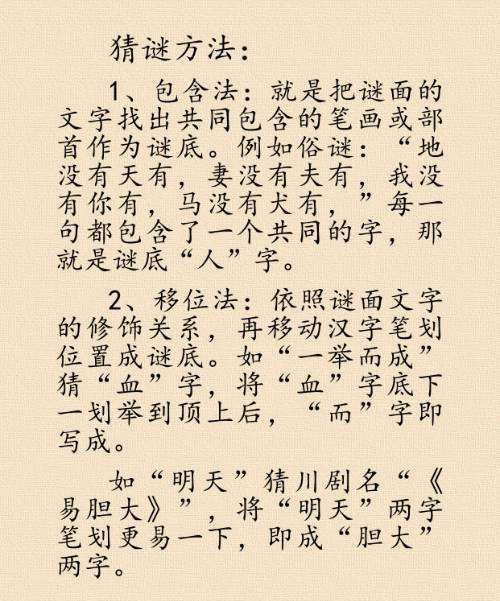 猜谜方法：
1、包含法：就是把谜面的
文字找出共同包含的笔画或部
首作为谜底。例如俗谜：“地
没有天有，妻没有夫有，我没
有你有，马没有犬有，”每一
句都包含了一个共同的字，那
就是谜底“人”字。
2、移位法：依照谜面文字
的修饰关系，再移动汉字笔划
位置成谜底。如“一举而成”
猜“血”字，将“血”字底下
一划举到顶上后，“而”字即
写成。
如“明天”猜川剧名“《
易胆大》”，将“明天”两字
笔划更易一下，即成“胆大”
两字。